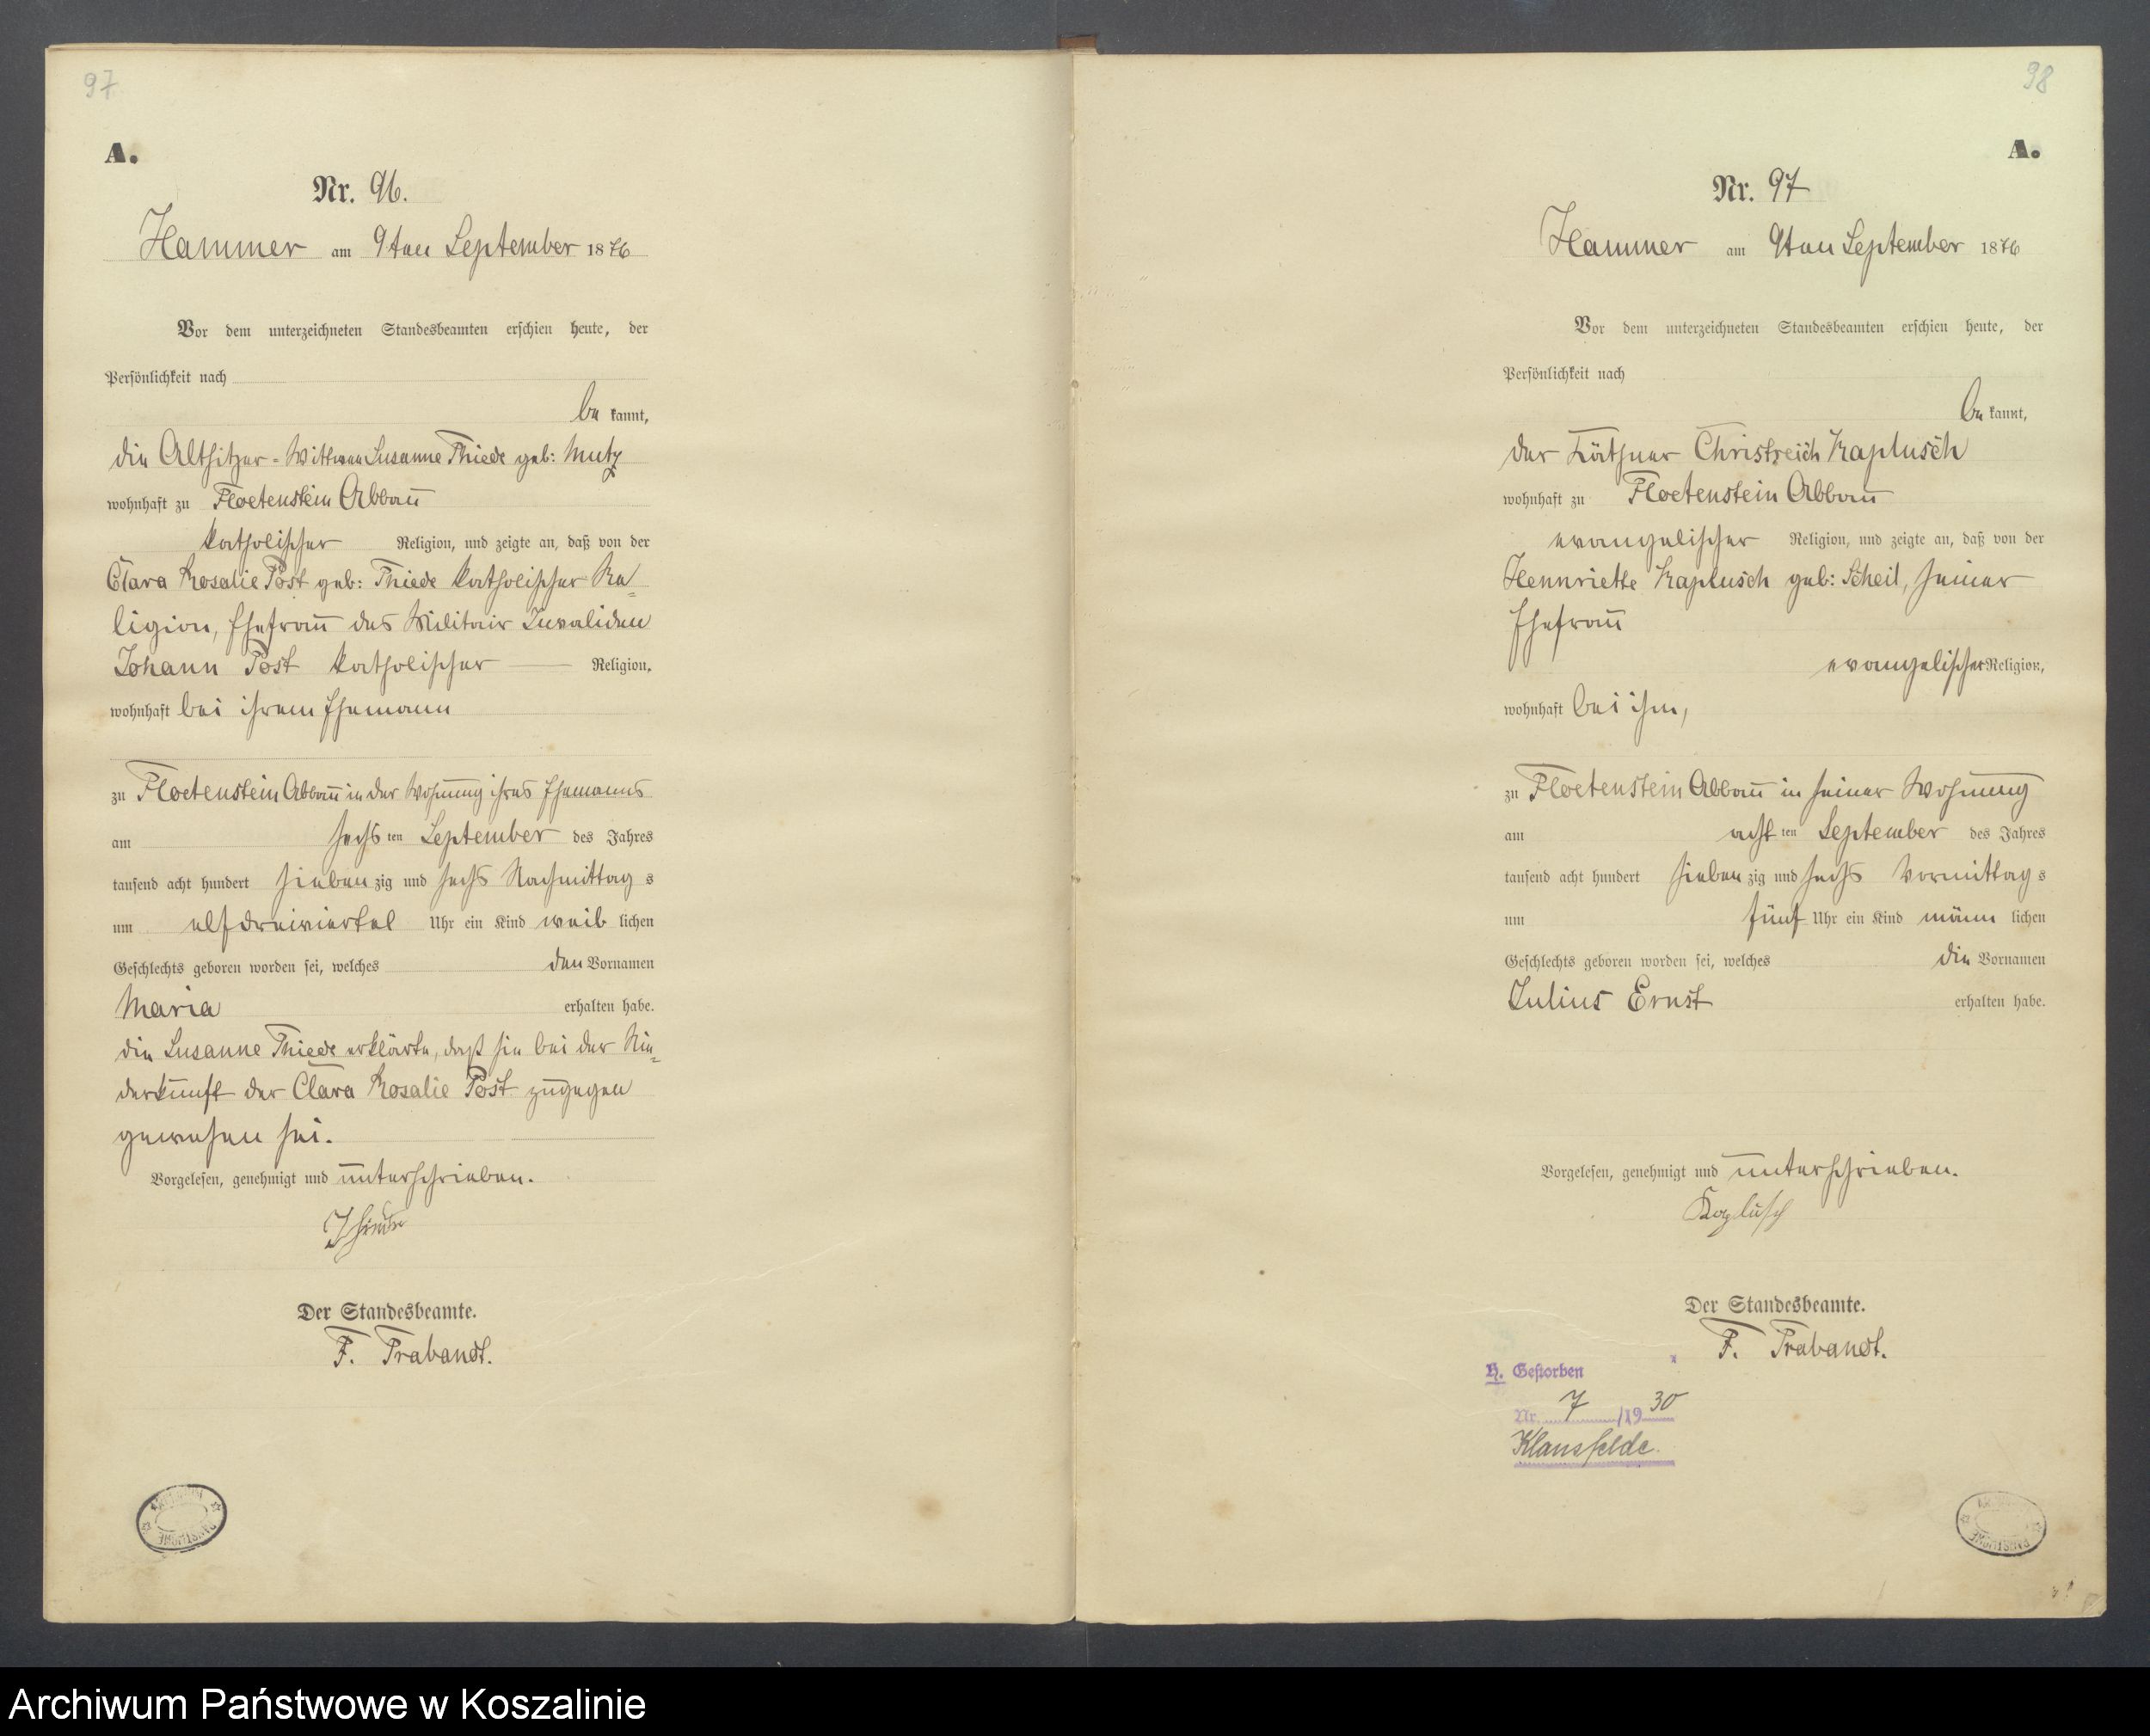 97
A.
Nr. 96.
Hammer am 9ten September 1876
Vor dem unterzeichneten Standesbeamten erschien heute, der
Persönlichkeit nach
be kannt,
die Altsitzer-Wittwe Susanne Thiede geb: Mutz
wohnhaft zu Floetenstein Abbau
katholischer Religion, und zeigte an, daß von der
Clara Rosalie Post geb: Thiede katholischer Re=
ligion, Ehefrau des Militair Invaliden
Johann Post katholischer Religion,
wohnhaft bei ihrem Ehemann
zu Floetenstein Abbau in der Wohnung ihres Ehemanns
am sechs ten September des Jahres
tausend acht hundert sieben zig und sechs Nachmittag s
um elfdreiviertel Uhr ein Kind weib lichen
Geschlechts geboren worden sei, welches den Vornamen
Maria erhalten habe.
die Susanne Thiede erklärte, daß sie bei der Nie=
derkunft der Clara Rosalie Post zugegen
gewesen sei.
Vorgelesen, genehmigt und unterschrieben.
Thiede
Der Standesbeamte.
F. Trabandt.
98
A.
Nr. 97
Hammer am 9ten September 1876
Vor dem unterzeichneten Standesbeamten erschien heute, der
Persönlichkeit nach
be kannt,
der Käthner Christreich Kaplusch
wohnhaft zu Floetenstein Abbau
evangelischer Religion, und zeigte an, daß von der
Hennriette Kaplusch geb: Scheil, seiner
Ehefrau
evangelischer Religion,
wohnhaft bei ihm,
zu Floetenstein Abbau in seiner Wohnung
am acht ten September des Jahres
tausend acht hundert sieben zig und sechs Vormittag s
um fünf Uhr ein Kind männ lichen
Geschlechts geboren worden sei, welches die Vornamen
Julius Ernst erhalten habe.
Vorgelesen, genehmigt und unterschrieben.
Kaplusch
Der Standesbeamte.
F. Trabandt.
H. Gestorben
Nr. 7 /1930
Klausfelde.
Archiwum Państwowe w Koszalinie